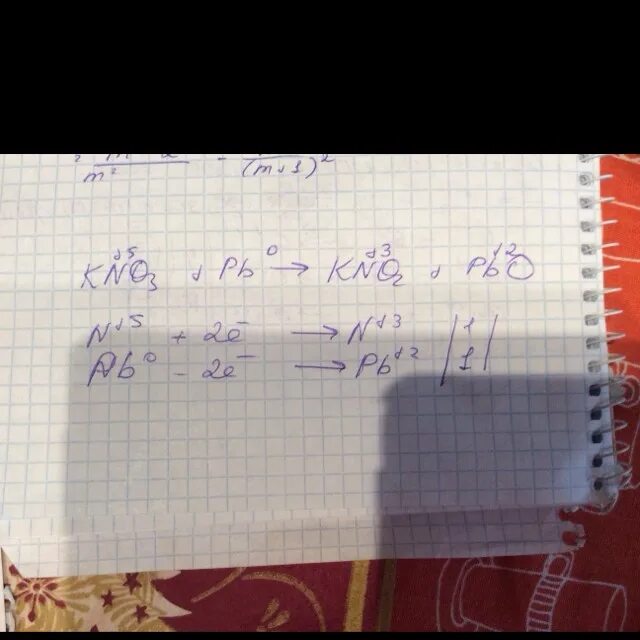 m²   (m+1)²
KN⁺⁵O₃ + Pb⁰ → KN⁺³O₂ + Pb⁺²O
N⁺⁵ + 2e⁻ → N⁺³ | 1 |
Pb⁰ - 2e⁻ → Pb⁺² | 1 |